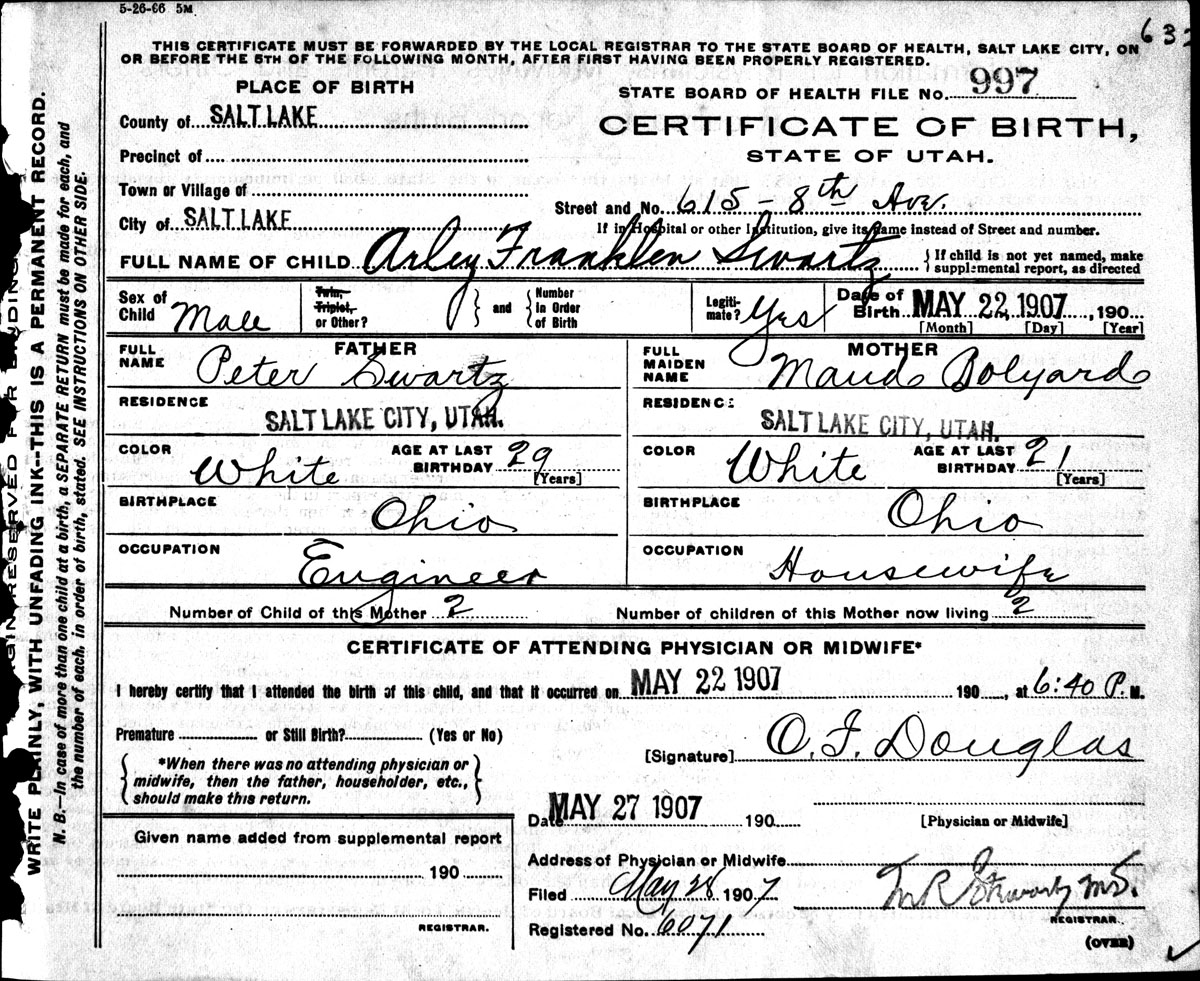 5-26-66 5M
632
THIS CERTIFICATE MUST BE FORWARDED BY THE LOCAL REGISTRAR TO THE STATE BOARD OF HEALTH, SALT LAKE CITY, ON
OR BEFORE THE 5TH OF THE FOLLOWING MONTH, AFTER FIRST HAVING BEEN PROPERLY REGISTERED.
PLACE OF BIRTH
STATE BOARD OF HEALTH FILE No. 997
County of SALT LAKE
CERTIFICATE OF BIRTH,
Precinct of
STATE OF UTAH.
Town or Village of
Street and No. 615 - 8th Ave.
City of SALT LAKE
If in Hospital or other Institution, give its name instead of Street and number.
FULL NAME OF CHILD Arley Franklen Swartz
If child is not yet named, make
supplemental report, as directed
Sex of Child Male
Twin, Triplet, or Other?
and
Number in Order of Birth
Legiti- mate? Yes
Date of Birth MAY 22 1907, 190
[Month] [Day] [Year]
FATHER
FULL NAME Peter Swartz
RESIDENCE
SALT LAKE CITY, UTAH.
COLOR White
AGE AT LAST BIRTHDAY 29
[Years]
BIRTHPLACE Ohio
OCCUPATION Engineer
MOTHER
FULL MAIDEN NAME Maud Bolyard
RESIDENCE
SALT LAKE CITY, UTAH.
COLOR White
AGE AT LAST BIRTHDAY 21
[Years]
BIRTHPLACE Ohio
OCCUPATION Housewife
Number of Child of this Mother 2
Number of children of this Mother now living 2
CERTIFICATE OF ATTENDING PHYSICIAN OR MIDWIFE*
I hereby certify that I attended the birth of this child, and that it occurred on MAY 22 1907 190, at 6:40 P. M.
Premature or Still Birth? (Yes or No)
[Signature] O. F. Douglas
*When there was no attending physician or
midwife, then the father, householder, etc.,
should make this return.
Date MAY 27 1907 190
[Physician or Midwife]
Given name added from supplemental report
190
REGISTRAR.
Address of Physician or Midwife
Filed May 28 1907
M.D.
REGISTRAR.
Registered No. 6071
(OVER)
WRITE PLAINLY, WITH UNFADING INK--THIS IS A PERMANENT RECORD.
N. B.—In case of more than one child at a birth, a SEPARATE RETURN must be made for each, and
the number of each, in order of birth, stated. SEE INSTRUCTIONS ON OTHER SIDE.